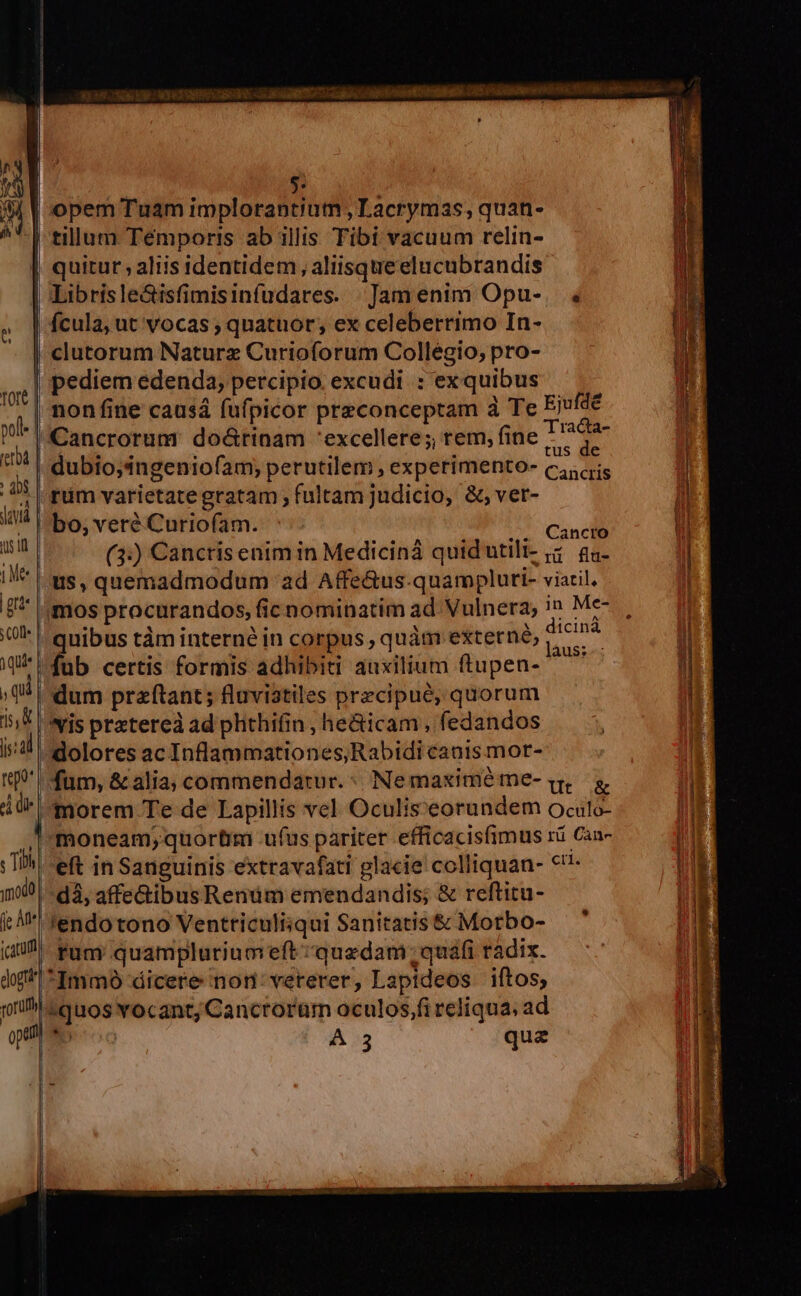 5.
opem Tuam implorantium, Lacrymas, quan-
tillum Temporis ab illis Tibi vacuum relin-
quitur, aliis identidem, aliisque elucubrandis
Libris lectisſimis inſudares. Jam enim Opu-
ſcula, ut vocas, quatuor, ex celeberrimo In-
clutorum Naturæ Curioſorum Collegio, pro-
pediem edenda, percipio excudi : ex quibus
non ſine causâ ſuſpicor præconceptam à Te
Cancrorum doctrinam excellere; rem, ſine
dubio, ingenioſam, perutilem, experimento-
rum varietate gratam, fultam judicio, &, ver-
bo, verè Curioſam.
Ejuſdẽ
Tracta-
tus de
Cancris
(3.) Cancris enim in Medicinâ quid utili-
us, quemadmodum ad Affectus quampluri-
mos procurandos, ſic nominatim ad Vulnera,
quibus tàm internè in corpus, quàm externè,
ſub certis formis adhibiti auxilium ſtupen-
dum præſtant; fluviatiles præcipuè, quorum
vis prætereà ad phthiſin, hecticam, fedandos
dolores ac Inflammationes, Rabidi canis mor-
ſum, & alia, commendatur. Ne maximè me-
morem Te de Lapillis vel Oculis eorundem
moneam, quorũm uſus pariter efficacisſimus
eſt in Sanguinis extravaſati glacie colliquan-
dâ, affectibus Renum emendandis; & reſtitu-
endo tono Ventriculi; qui Sanitatis & Morbo-
rum quamplurium eſt quædam quaſi radix.
Immò dicere non vererer, Lapideos iſtos,
quos vocant, Cancrorum oculos, ſi reliqua, ad
Cancro
rũ flu-
viatil.
in Me-
dicinâ
laus;
Ut &
Oculo-
rũ Can-
cri.
A 3
quæ